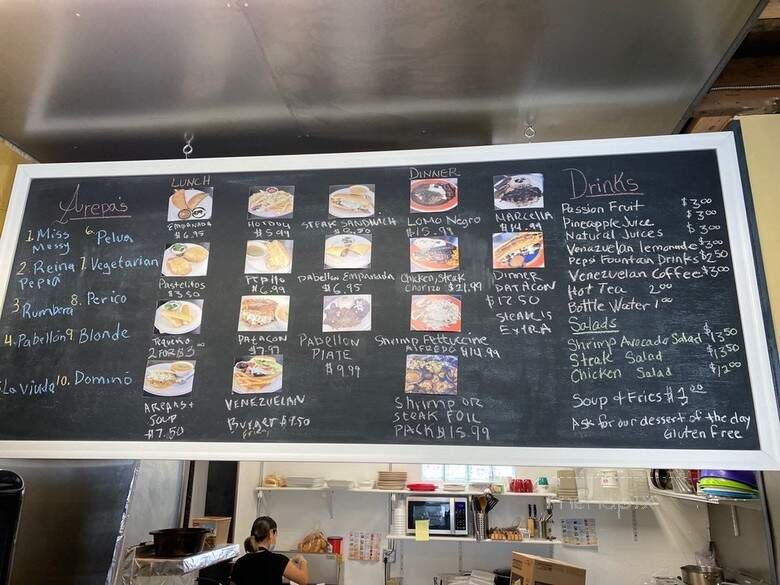 Arepas
1. Miss
Messy
2. Reina
Pepia
3 Rumbera
4. Pabellón
La Viuda
6. Pelua
7. Vegetarian
8. Perico
9 Blonde
10. Dominó
LUNCH
EMPANADA
$6.95
Hotdog
$5.99
STEAK SANDWICH
Pastelitos
$3.50
PEPITO
$6.99
Pabellon Empanada
$6.95
Tequeño
2 FOR $3.00
PATACON
$7.97
PABELLON
PLATE
$9.99
AREPAS +
SOUP
$7.50
VENEZUELAN
Burger $7.50
fries
DINNER
LOMO Negro
$15.99
NARCELLA
$14.99
Chicken, steak
Chorizo $21.99
DINNER
PATACON
$17.50
STEAK IS
EXTRA
Shrimp Fettuccine
ALFREDO $14.99
Shrimp OR
STEAK FOIL
PACK $15.99
Drinks
Passion Fruit $3.00
Pineapple Juice $3.00
Natural Juices $3.00
Venazuelan lemonade $3.00
Pepsi Fountain Drinks $2.50
Venezuelan Coffee $3.00
Hot Tea 2.00
Bottle Water 1.00
Salads
Shrimp Avocado Salad $13.50
Steak Salad $13.50
Chicken Salad $12.00
Soup + Fries $1.00
Ask for our dessert of the day
Gluten Free